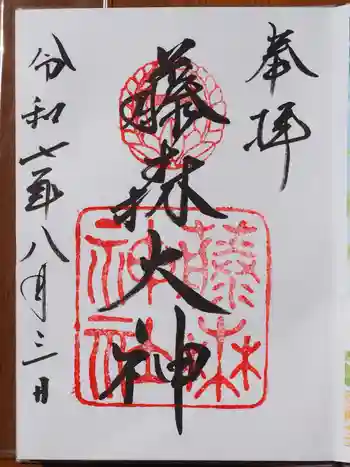 奉拝
藤森大神
藤森
神社
令和七年八月三日